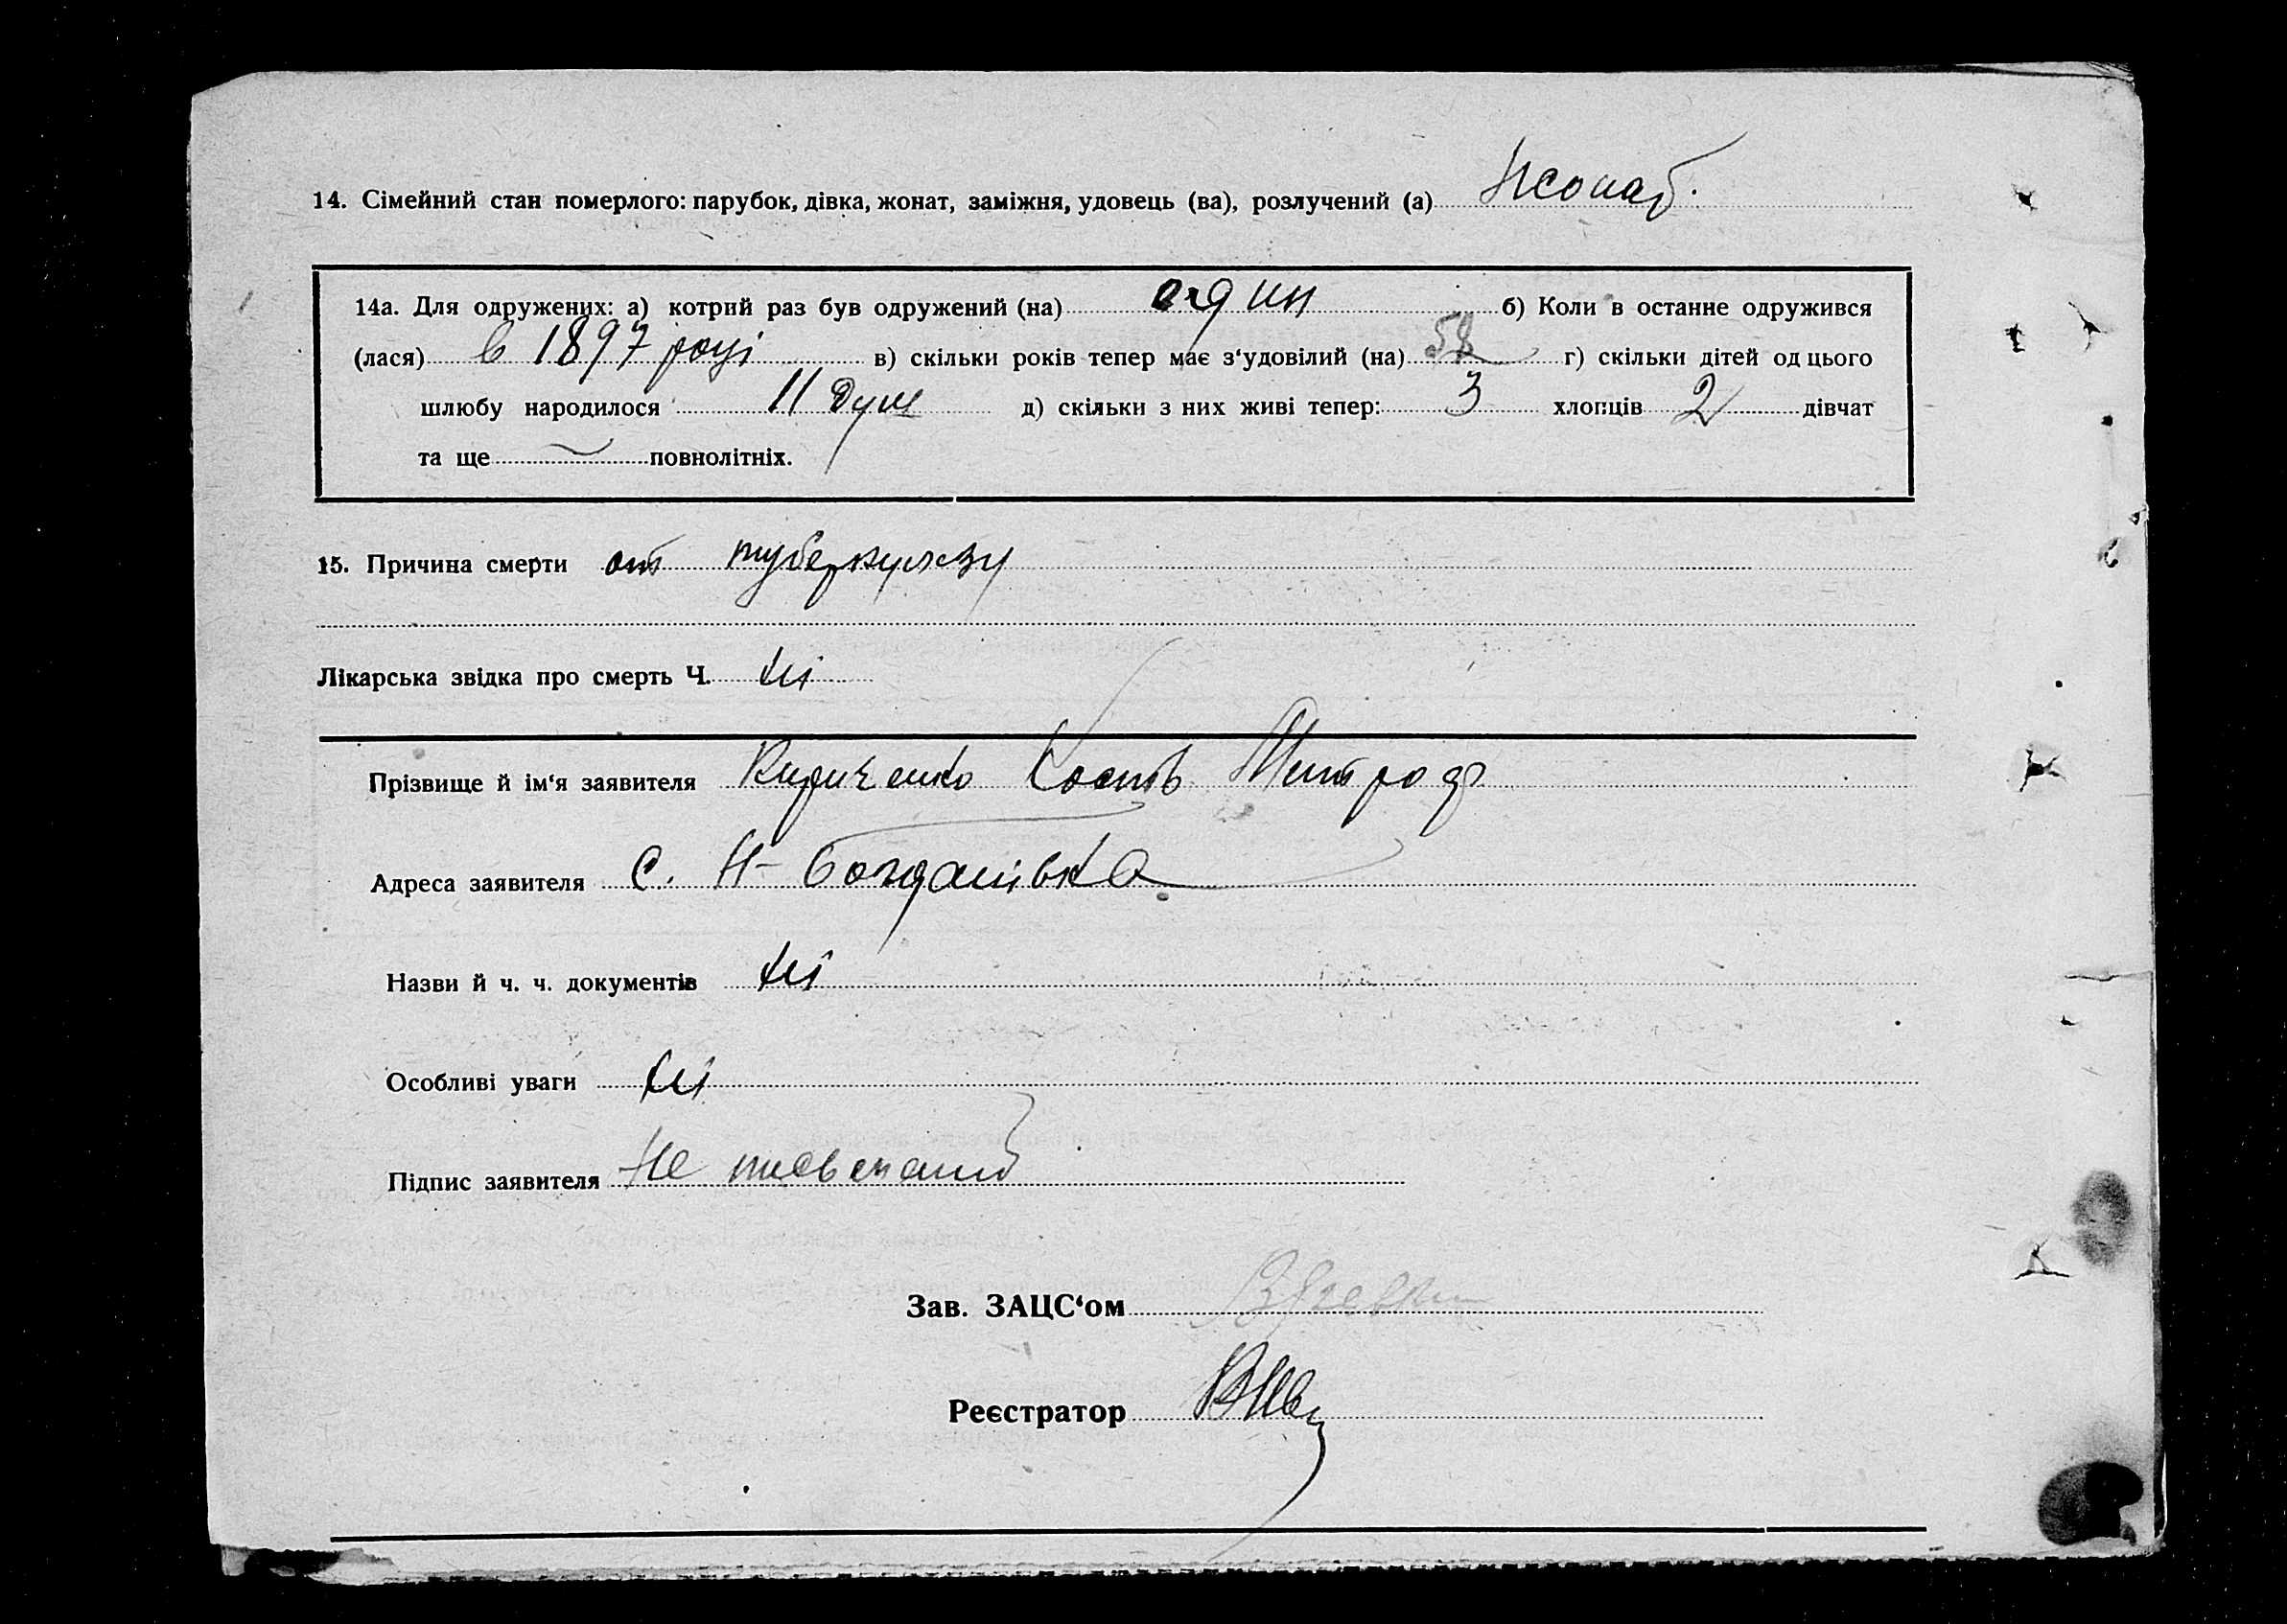 14. Сімейний стан померлого: парубок, дівка, жонат, заміжня, удовець (ва), розлучений (а) Жонат.
14а. Для одружених: а) котрий раз був одружений (на) один б) Коли в останне одружився
(лася) в 1897 році в) скільки років тепер має з‘удовілий (на) 58 г) скільки дітей од цього
шлюбу народилося 11 душ д) скільки з них живі тепер: 3 хлопців 2 дівчат
та ще — повнолітніх.
15. Причина смерти от туберкульозу
Лікарська звідка про смерть Ч. ні
Прізвище й ім‘я заявителя Кириченко Кость Митроф.
Адреса заявителя с. Н-Богданівка
Назви й ч. ч. документів ні
Особливі уваги ні
Підпис заявителя Не письменний
Зав. ЗАЦС‘ом
Реєстратор